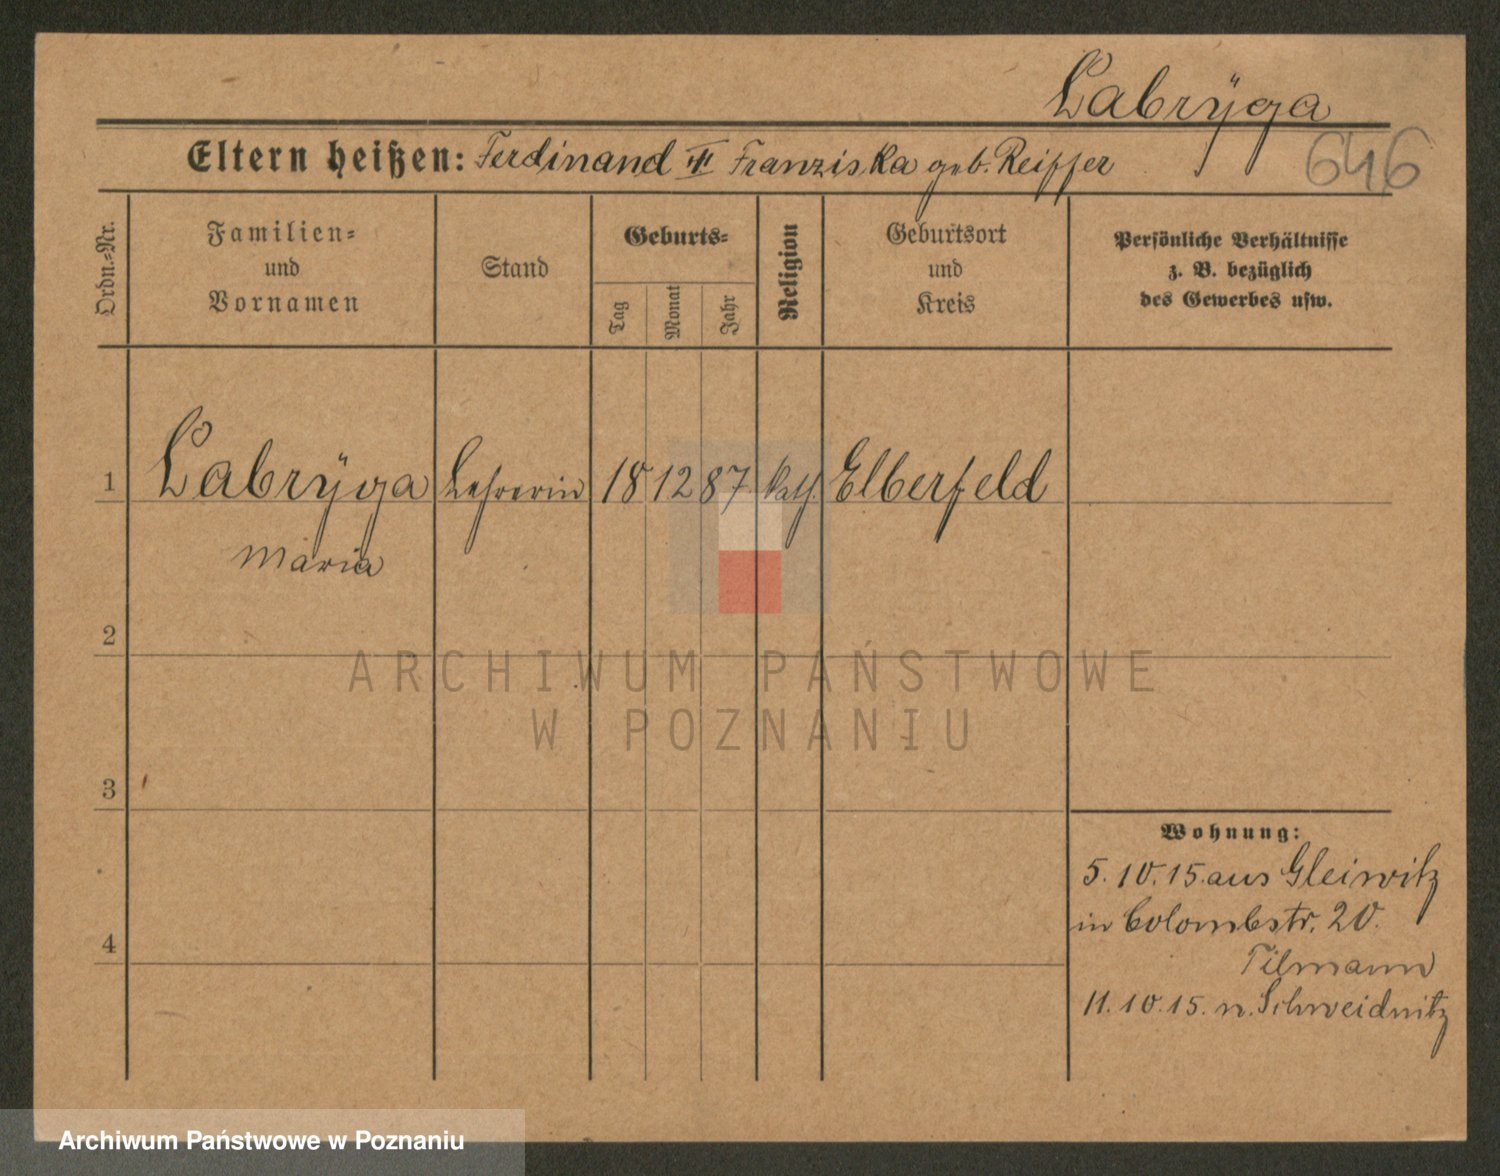 Labrÿga
Eltern heißen: Ferdinand Franziska geb. Reiffer
646
Ordn.-Nr.
Familien-
und
Vornamen
Stand
Geburts-
Tag
Monat
Jahr
Religion
Geburtsort
und
Kreis
Persönliche Verhältnisse
z. B. bezüglich
des Gewerbes usw.
1 Labrÿga Lehrerin 18 12 87 kath. Elberfeld
Maria
2
ARCHIWUM PAŃSTWOWE
W POZNANIU
3
Wohnung:
5. 10. 15. aus Gleiwitz
in Colombstr. 20.
4
Tilmann
11. 10. 15. n. Schweidnitz
Archiwum Państwowe w Poznaniu